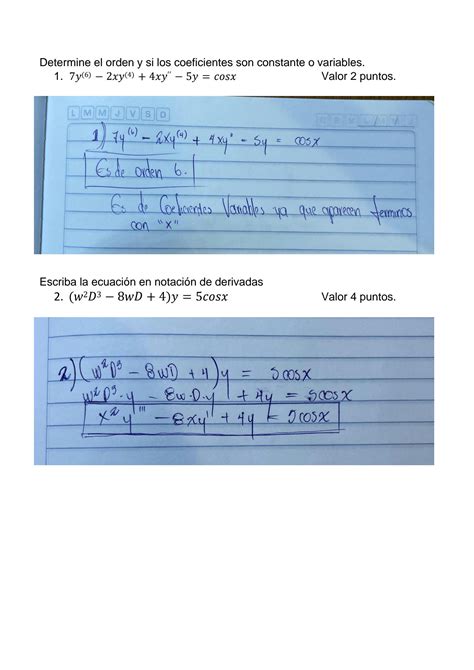 Determine el orden y si los coeficientes son constante o variables.
1. 7y⁽⁶⁾ − 2xy⁽⁴⁾ + 4xy'' − 5y = cosx Valor 2 puntos.
L M M J V S D
1) 7y⁽⁶⁾ − 2xy⁽⁴⁾ + 4xy'' − 5y = cosx
Es de orden 6.
Es de Coeficientes Variables ya que aparecen terminos
con "x"
Escriba la ecuación en notación de derivadas
2. (w²D³ − 8wD + 4)y = 5cosx Valor 4 puntos.
2) (w²D³ − 8wD + 4)y = 5cosx
w²D³·y − 8w·D·y + 4y = 5cosx
x²y''' − 8xy' + 4y = 5cosx